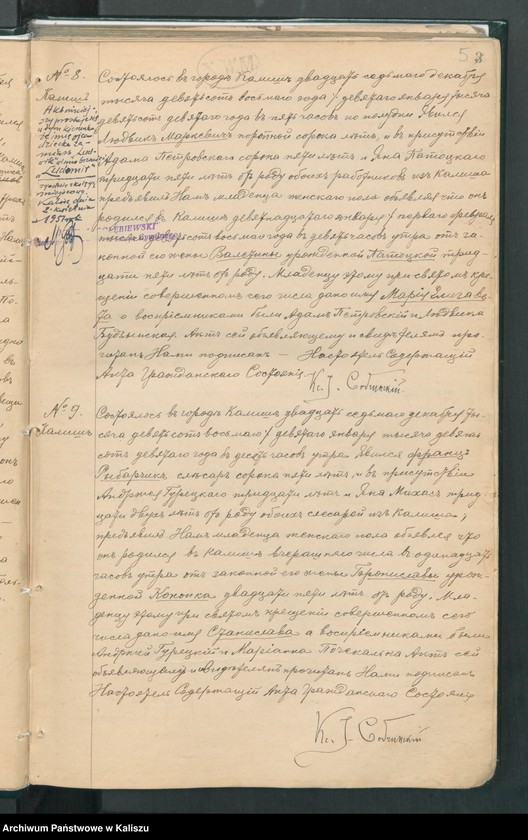 53
№ 8.
Калишъ
Состоялось въ городѣ Калишѣ двадцать седьмаго декабря
тысяча девятьсотъ восьмаго года / девятаго января тысяча
девятьсотъ девятаго года въ часовъ по полудни. Явился
Людвикъ Маркевичъ сорока лѣтъ, и въ присутствіи
Адама Петровскаго сорока пяти лѣтъ и Яна Патоцкаго
тридцати пяти лѣтъ отъ роду обоихъ работниковъ изъ Калиша
предъявилъ Намъ младенца женскаго пола объявляя что онъ
родился въ Калишѣ девятнадцатаго января / перваго февраля
восьмаго года въ девять часовъ утра отъ за-
конной его жены Валентины урожденной Патоцкой трид-
цати пяти лѣтъ отъ роду. Младенцу этому при святомъ кре-
щеніи совершенномъ сего числа дано имя Марія Елизаве-
та а воспріемниками были Адамъ Петровскій и Людвика
Будзынская. Актъ сей объявляющему и свидѣтелямъ про-
читанъ Нами подписанъ — Настоятель Содержащій
Акта Гражданскаго Состоянія
Кс. І. Собчинскій
№ 9.
Калишъ
Состоялось въ городѣ Калишѣ двадцать седьмаго декабря ты-
сяча девятьсотъ восьмаго / девятаго января тысяча девять-
сотъ девятаго года въ десять часовъ утра. Явился Францъ
Рыбарчикъ, слесарь сорока пяти лѣтъ, и въ присутствіи
Андрея Гурецкаго тридцати лѣтъ и Яна Михась трид-
цати двухъ лѣтъ отъ роду обоихъ слесарей изъ Калиша,
предъявилъ Намъ младенца женскаго пола объявляя что
онъ родился въ Калишѣ вчерашняго числа въ одинадцать
часовъ утра отъ законной его жены Брониславы урож-
денной Кононка двадцати пяти лѣтъ отъ роду. Мла-
денцу этому при святомъ крещеніи совершенномъ сего
числа дано имя Станислава а воспріемниками были
Андрей Гурецкій и Маріанна Почекальна. Актъ сей
объявляющему и свидѣтелямъ прочитанъ Нами подписанъ
Настоятель Содержащій Акта Гражданскаго Состоянія
Кс. І. Собчинскій
Archiwum Państwowe w Kaliszu